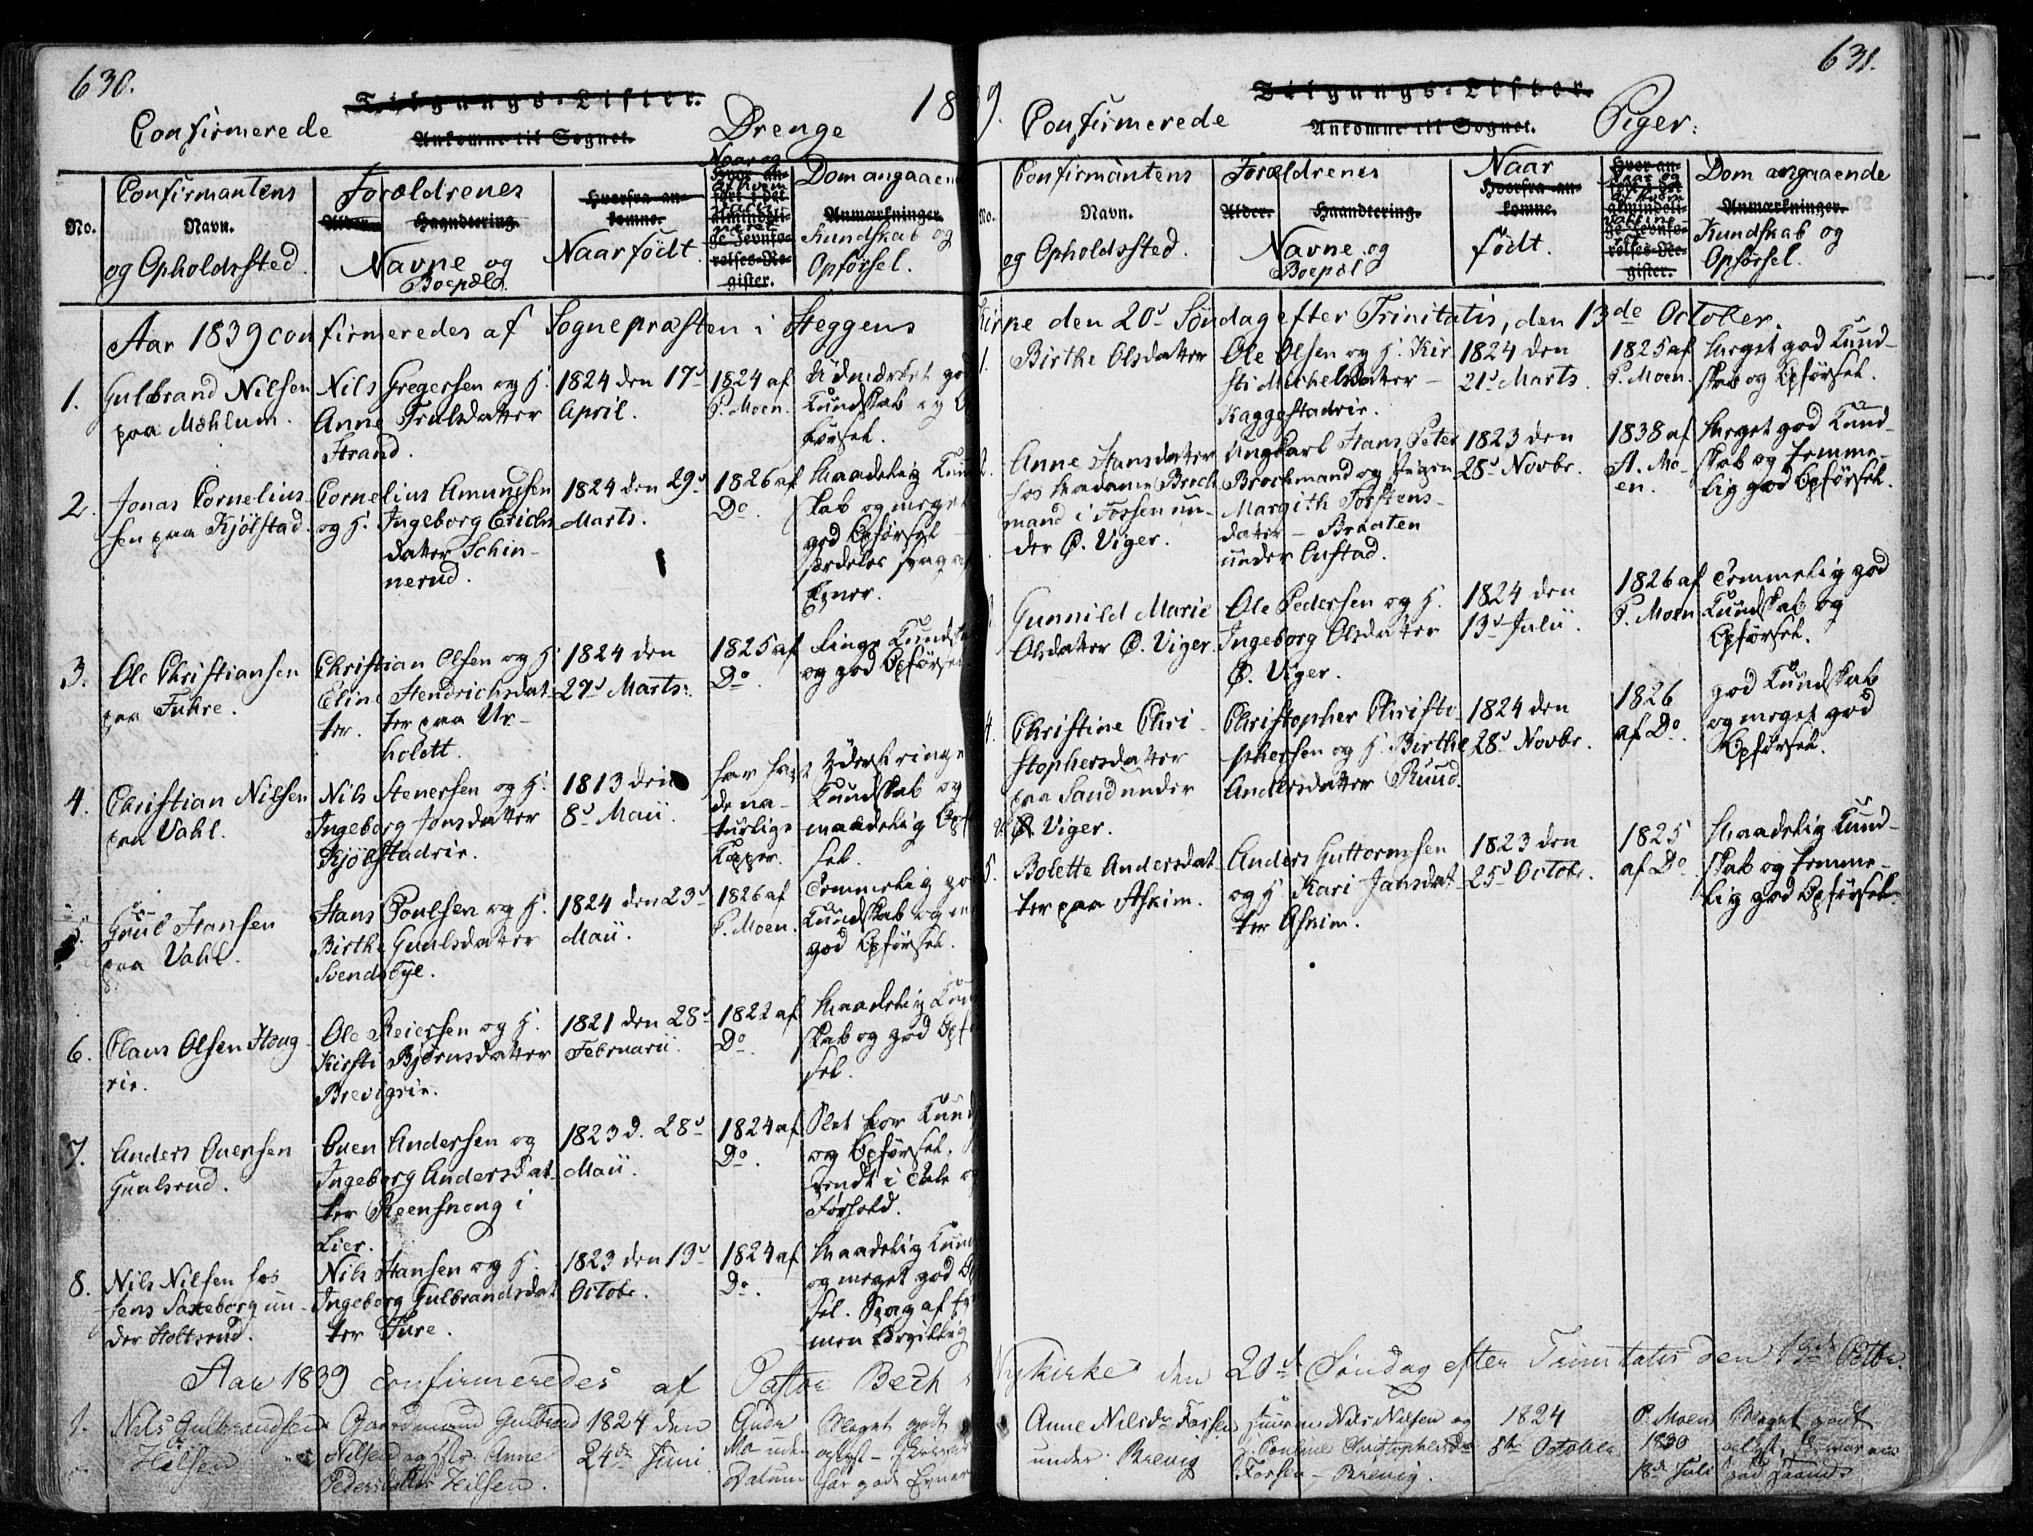 630.
Tilgangs-Lister.
Confirmerede
Ankomne til Sognet.
Drenge
18
Confirmantens
No.
Navn.
og Opholdssted.
Forældrenes
Alder.
Haandtering.
Navne og
Boepæl.
Hvorfra an-
komne.
Naar født.
Naar og
Hvor an-
ført i det
almindeli-
ge Jevnfø-
relses-Re-
gister.
Dom angaaen
Anmærkninger.
Kundskab og
Opførsel.
Aar 1839 confirmeredes af Sognepræsten i Heggens
1.
Gulbrand Nilsen
paa Mæhlum.
Nils Gregersen og H.
Anne Trulsdatter
Strand.
1824 den 17d
April.
1824 af
P. Moen.
Udmærket god
Kundskab og O
førsel.
2.
Jonas Cornelius-
sen paa Kjølstad.
Cornelius Amundsen
og H. Ingeborg Erichs
datter Schin-
nerud.
1824 den 29d
Marts.
1826 af
Do.
Maadelig Kund
skab og meget
god Opførsel
særdeles svag af
Evner.
3.
Ole Christiansen
paa Fuhre.
Christian Olsen og H.
Eline Hendrichsdat-
ter. ter paa Ur-
holett.
1824 den
27d Marts.
1825 af
Do.
Ringe Kundska
og god Opførsel
4.
Christian Nilsen
paa Vahl.
Nils Stenersen og H.
Ingeborg Jonsdatter
Kjølstadrie.
1813 den
8d Maii.
har havt
de na-
turlige
Kopper.
Yderst ringe
Kundskab og
maadelig Opf
sel.
5.
Guul Hansen
paa Vahl.
Hans Poulsen og H.
Birthe Guulsdatter
Svendsbye.
1824 den 23d
Maii.
1826 af
P. Moen.
Temmelig go
Kundskab og m
god Opførsel.
6.
Claus Olsen Houg-
rie.
Ole Reiersen og H.
Kirsti Bjørnsdatter
Brevigrie.
1821 den 28d
Februarii.
1822 af
Do.
Maadelig Kun
skab og god Opf
sel.
7.
Anders Ouensen
Guulsrud.
Ouen Andersen og
Ingeborg Andersdat-
ter Reensnong i
Lier.
1823 d. 28d
Maii.
1824 af
Do.
Slet for Kund
og Opførsel.
rendt i Tale og
Forhold.
8.
Nils Nilsen hos
Jens Saxeborg un-
der Holtsrud.
Nils Hansen og H.
Ingeborg Gulbrandsdat
ter Fure.
1823 den 13d
Octobr.
1824 af
Do.
Maadelig Kund
og meget god O
sel. Svag af Ev
men
Aar 1839 confirmeredes af Pastor Bech
1.
Nils Gulbrandsen
Hilsen
Gaardmand Gulbrand
Nilsen og Hstr. Anne
Pedersdatter Hilsen.
1824 den
24de Juni
Gude
No uden
Datum
Meget godt
oplyst -
har gode Evner
631.
9.
Tilgangs-Lister.
Confirmerede
Ankomne til Sognet.
Piger:
Confirmantens
No.
Navn.
og Opholdssted.
Forældrenes
Alder.
Haandtering.
Navne og
Boepæl
Naar
Hvorfra an-
komne.
født.
Hvor an-
ført i det
almindeli-
ge Jevnfø-
relses-Re-
gister.
Dom angaaende
Anmærkninger.
Kundskab og
Opførsel.
Kirke den 20d Søndag efter Trinitatis, den 13de October.
1.
Birthe Olsdatter
Ole Olsen og H. Kir
sti Michelsdatter -
Kaggestadrie.
1824 den
21d Marts.
1825 af
P. Moen.
Meget god Kund-
skab og Opførsel.
2.
Anne Hansdatter
hos Madame Broch
mand i Fossen un-
der Ø. Viger.
Ungkarl Hans Peter
Brochmand og Pigen
Margith Torstens-
datter - Braaten
under Enstad.
1823 den
28d Novbr.
1838 af
A. Mo-
en.
Meget god Kund-
skab og temme-
lig god Opførsel.
3.
Gunnild Marie
Olsdatter Ø. Viger.
Ole Pedersen og H.
Ingeborg Olsdatter
Ø. Viger.
1824 den
13d Julii.
1826 af
P. Moen
Temmelig god
Kundskab og
Opførsel.
4.
Christine Chri-
stophersdatter
paa Sand under
Ø. Viger.
Christopher Christo-
phersen og H. Birthe
Andersdatter Ruud.
1824 den
28d Novbr.
1826
af Do.
god Kundskab
og meget god
Opførsel.
5.
Bolette Andersdat
ter paa Askim.
Anders Guttormsen
og H. Kari Jansdat
ter Askim.
1823 den
25d Octobr.
1825
af Do
Maadelig Kund-
skab og temme-
lig god Opførsel.
Nykirke den 20de Søndag efter Trinitatis den 13de Octbr.
Anne Nilsdr. Fossen
under Brevig
Huusm. Nils Nilsen og
H. Pouline Christophersdr
Fossen - Brevig.
1824
8de October
P. Moen
1830
18de Juli
Meget godt
oplyst,
god Haands